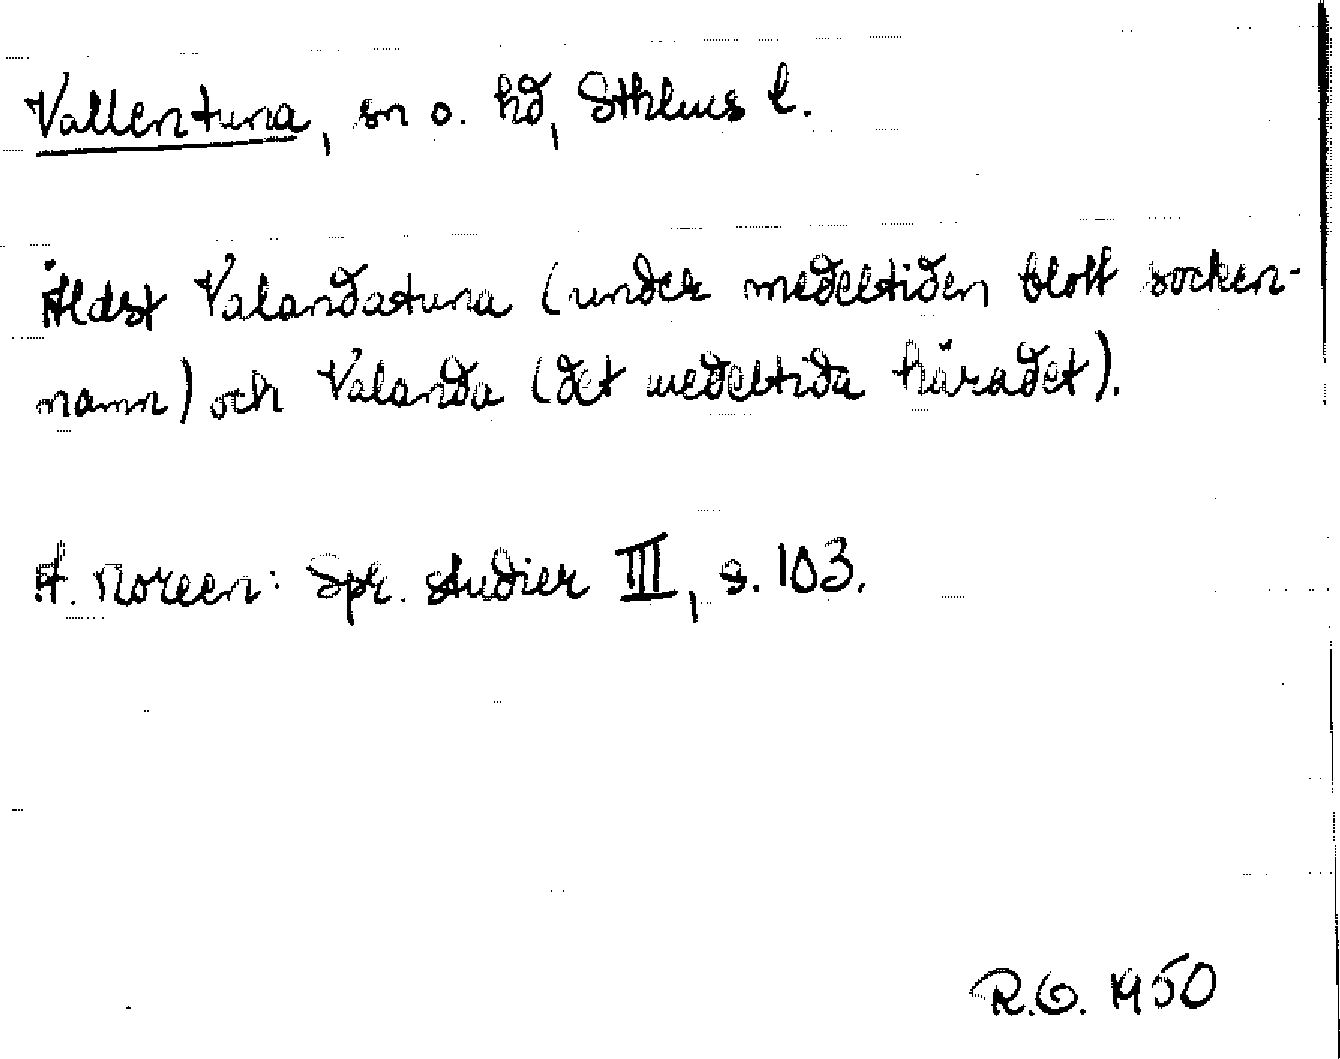 Vallentuna, sn o. hd, Sthlms l.
Äldst Valandatuna (under medeltiden blott socken-
namn) och Valanda (det medeltida häradet).
A. Noreen: Spr. studier III, s. 103.
R.O. 1950